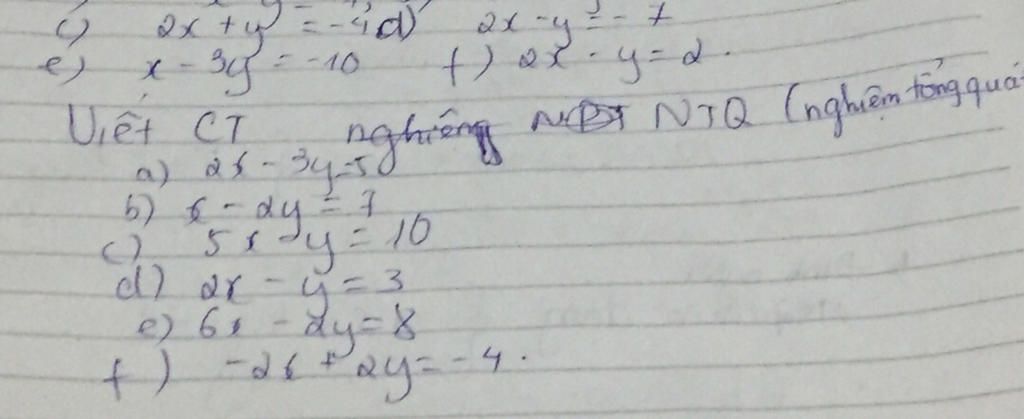 c) 2x + y = -4 d) 2x - y = -7
e) x - 3y = -10 f) 2x - y = 2.
Viết CT nghiêng NTQ (nghiệm tổng quá
a) 2x - 3y = 5
b) x - 2y = 7
c) 5x - y = 10
d) 2x - y = 3
e) 6x - 2y = 8
f) -2x + 2y = -4.